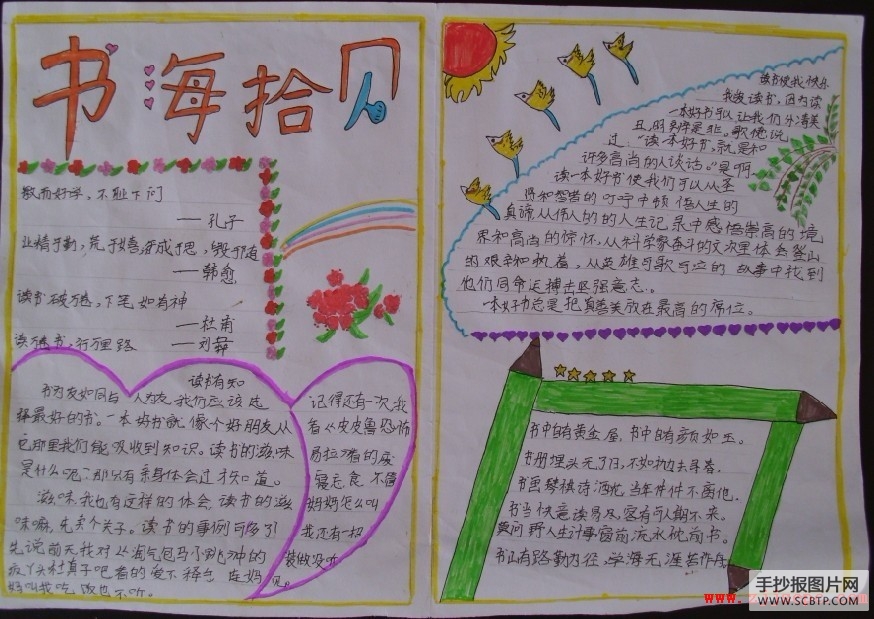 书海拾贝
敏而好学,不耻下问
——孔子
业精于勤,荒于嬉,行成于思,毁于随
——韩愈
读书破万卷,下笔如有神
——杜甫
读万卷书,行万里路 ——刘彝
读书有知
书为友如同与人为友,我们应该选
择最好的书。一本好书就像个好朋友从
它那里我们能吸收到知识。读书的滋味
是什么呢?那只有亲身体会过才知道。
滋味,我也有这样的体会,读书的滋
味嘛,先卖个关子。读书的事例可多了!
先说前天我对《淘气包马小跳》中的
疯丫头杜真子吧看的爱不释台 连妈
妈叫我吃饭也不听。
记得还有一次,我
看《皮皮鲁恐怖
易拉》看的废
寝忘食,不管
妈妈怎么叫
我还有一招
装做没听
见。
读书使我快乐
我爱读书,因为读
一本好书可以让我们分清美
丑,明辩是非。歌德说
过:“读一本好书,就是和
许多高尚的人谈话。”是啊,
读一本好书使我们可以从圣
贤和智者的叮咛中顿悟人生的
真谛从伟人的的人生记录中感悟崇高的境
界和高尚的情怀,从科学家奋斗的文次里体会登山
的艰辛和执着,从英雄可歌可泣的故事中找到
他们同命运搏击坚强意志。
一本好书总是把真善美放在最高的席位。
书中自有黄金屋,书中自有颜如玉。
书册埋头无了日,不如抛去寻春。
书画琴棋诗酒花,当年件件不离他。
书当快意读易尽,客有可人期不来。
莫问野人生计事,窗前流水枕前书。
书山有路勤为径,学海无涯苦作舟
手抄报图片网
WWW.SCBTP.COM